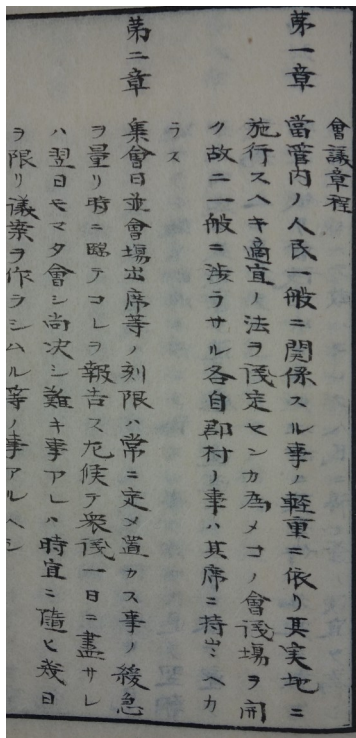 會議章程
第一章　當管内ノ人民一般ニ関係スル事ノ軽重ニ依リ其実地ニ
施行スヘキ適宜ノ法ヲ議定センカ為メコノ會議場ヲ開
ク故ニ一般ニ渉ラサル各自郡村ノ事ハ其席ニ持出ヘカ
ラス
第二章　集會日並會場出席等ノ刻限ハ常ニ定メ置カス事ノ緩急
ヲ量リ時ニ臨テコレヲ報告ス尤候テ衆議一日ニ盡サレ
ハ翌日モマタ會シ尚決シ難キ事アレハ時宜ニ隨ヒ幾日
ヲ限リ議案ヲ作ラシムル等ノ事アルヘシ